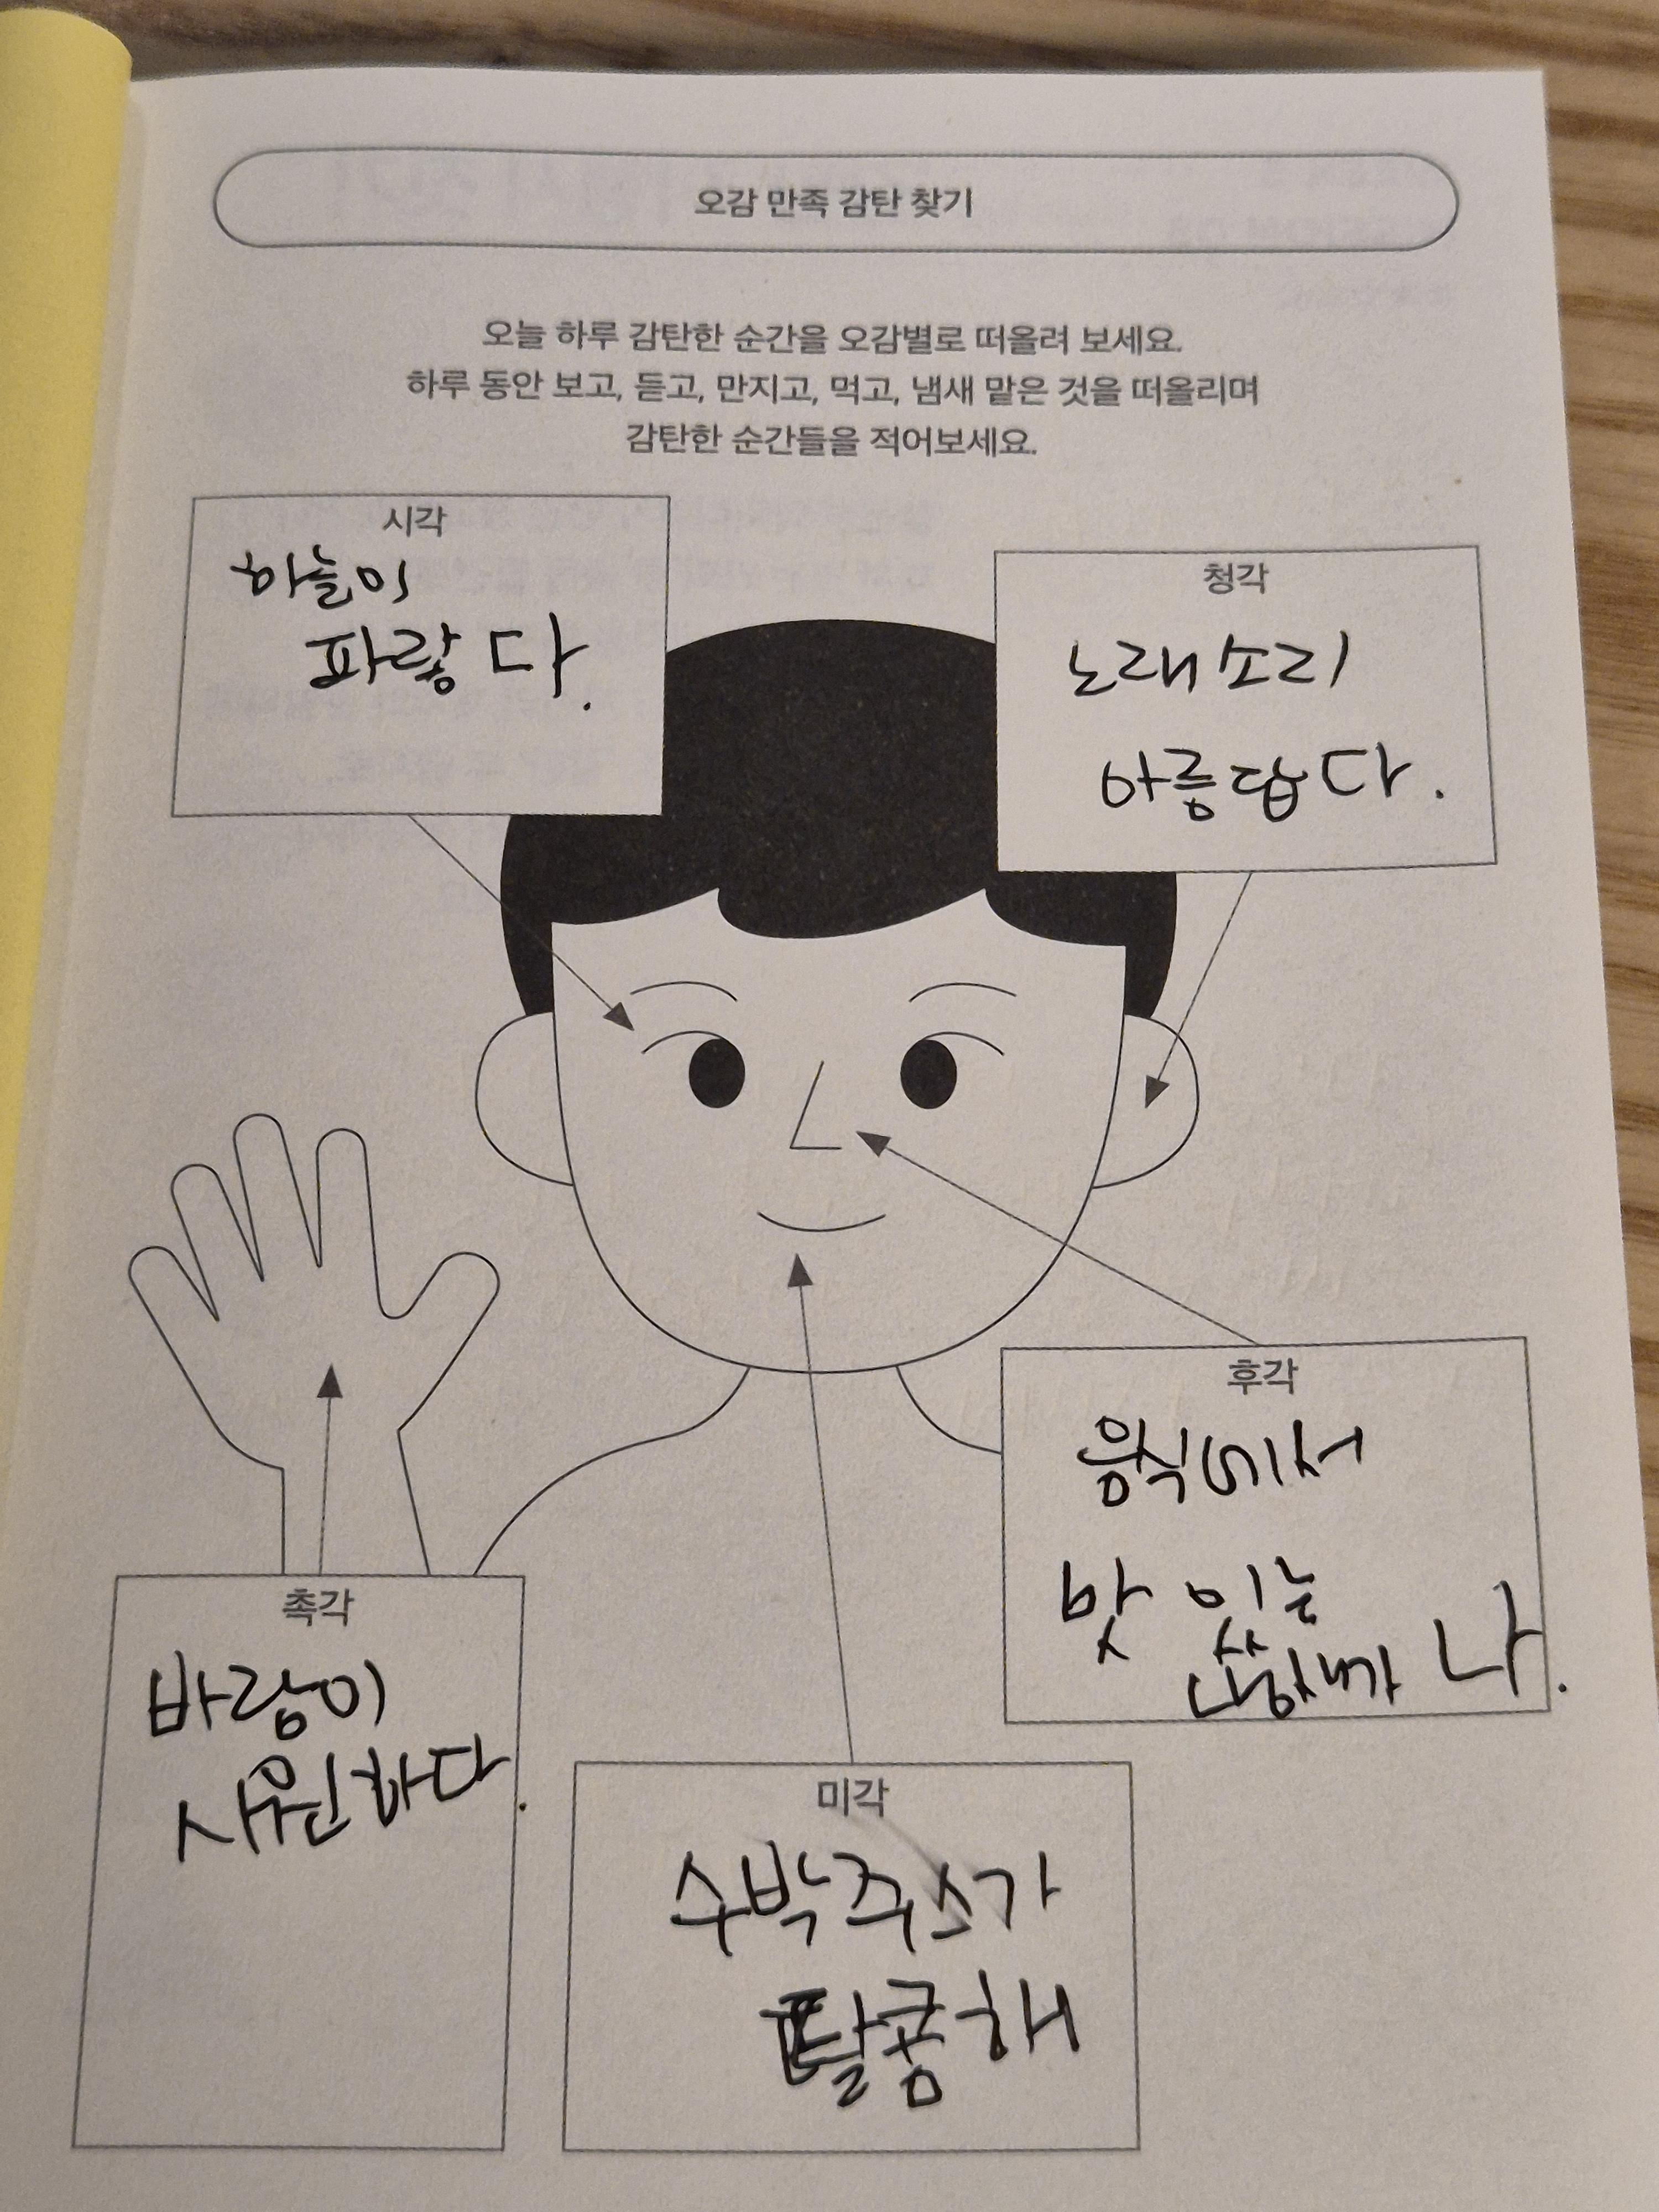 오감 만족 감탄 찾기
오늘 하루 감탄한 순간을 오감별로 떠올려 보세요.
하루 동안 보고, 듣고, 만지고, 먹고, 냄새 맡은 것을 떠올리며
감탄한 순간들을 적어보세요.
시각
하늘이
파랗다.
청각
노래소리
아름답다.
후각
음식에서
맛있는
냄새가 나.
촉각
바람이
시원하다.
미각
수박주스가
달콤해